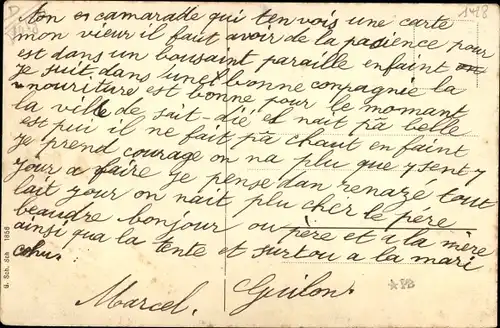 ton es camaradde qui t'envois une carte
mon vieux il faut avoir de la pasience pour
est dans un bousaint paraille enfaint on
je suit dans une bonne conpagnie la
nouriture est bonne pour le momant
la ville de sait-dié el nait pâ belle
est pui il ne fait pâ chaut en faint
je prend courage on na plu que y sent y
jour a faire je pense dan renaze tout
lait jour on nait plu cher le père
beaudre bonjour ou père et i la mère
ainsi qua la tente et surtou a la mari
Marcel. Guilon.
G. Sch. Sch 1656
148